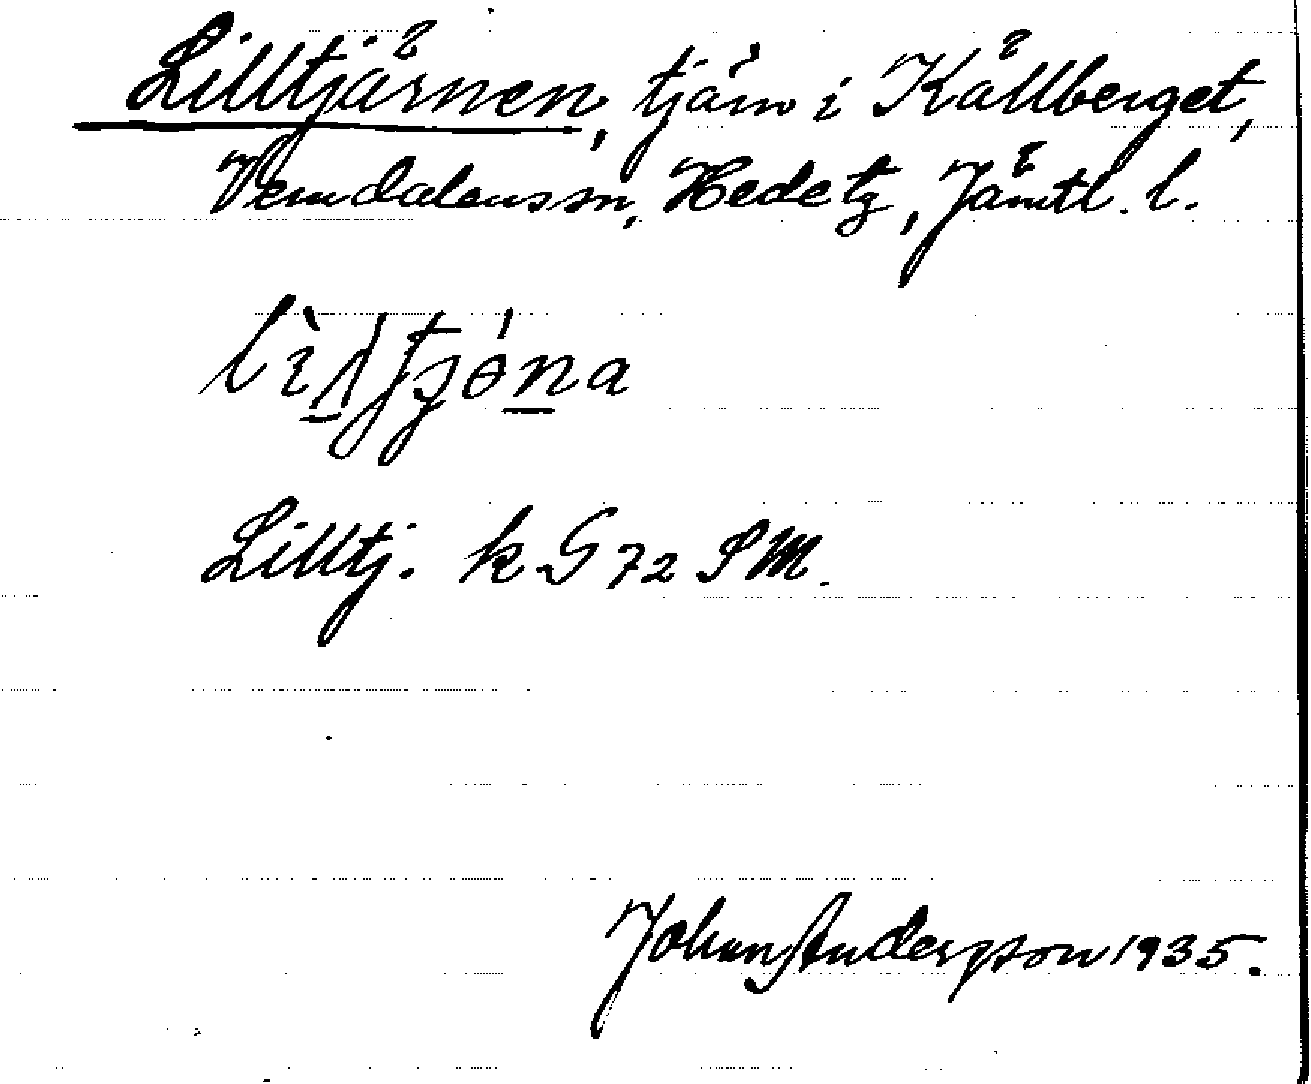 Lilltjärnen, tjärn i Källberget,
Vemdalens sn, Hede tg, Jämtl. l.
Lilltj. k G 72 SM.
Johan Anderson 1935.